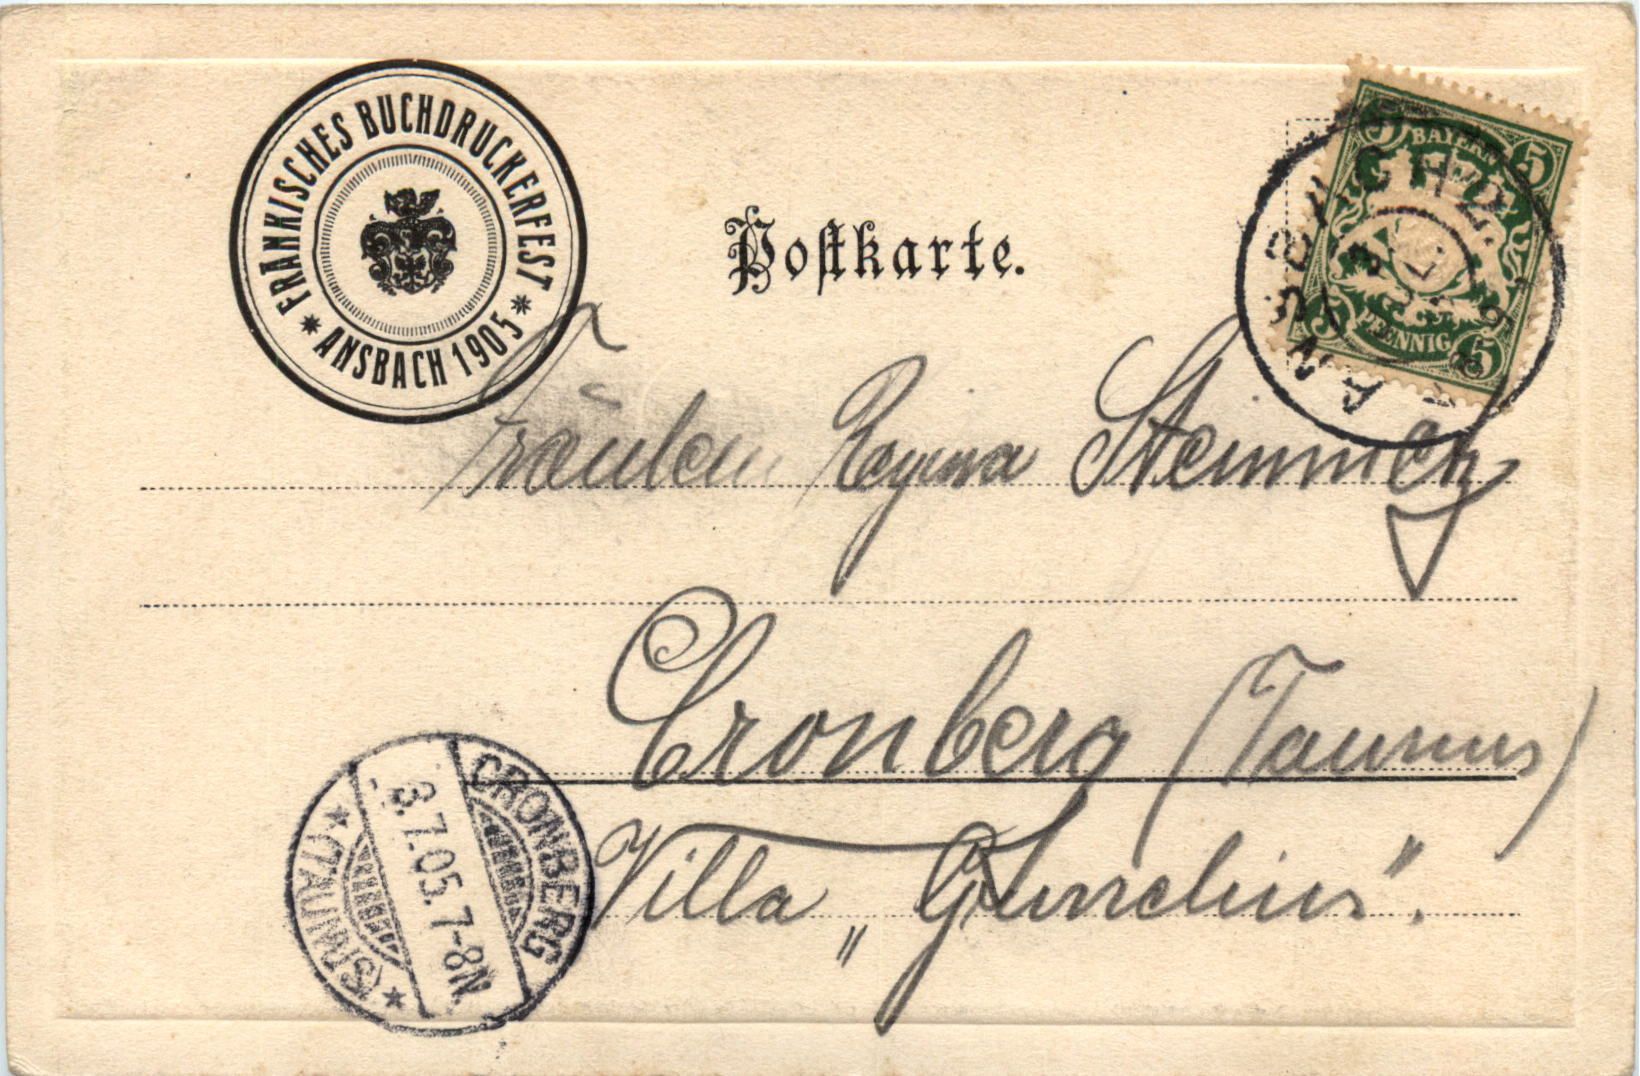 FRÄNKISCHES BUCHDRUCKERFEST
* ANSBACH 1905 *
Postkarte.
BAYERN
5 5
PFENNIG
5 5
ANSBACH 2.
Fräulein Regina
Cronberg (Taunus)
Villa „ “.
CRONBERG
3.7.05. 7-8N.
* (TAUNUS) *